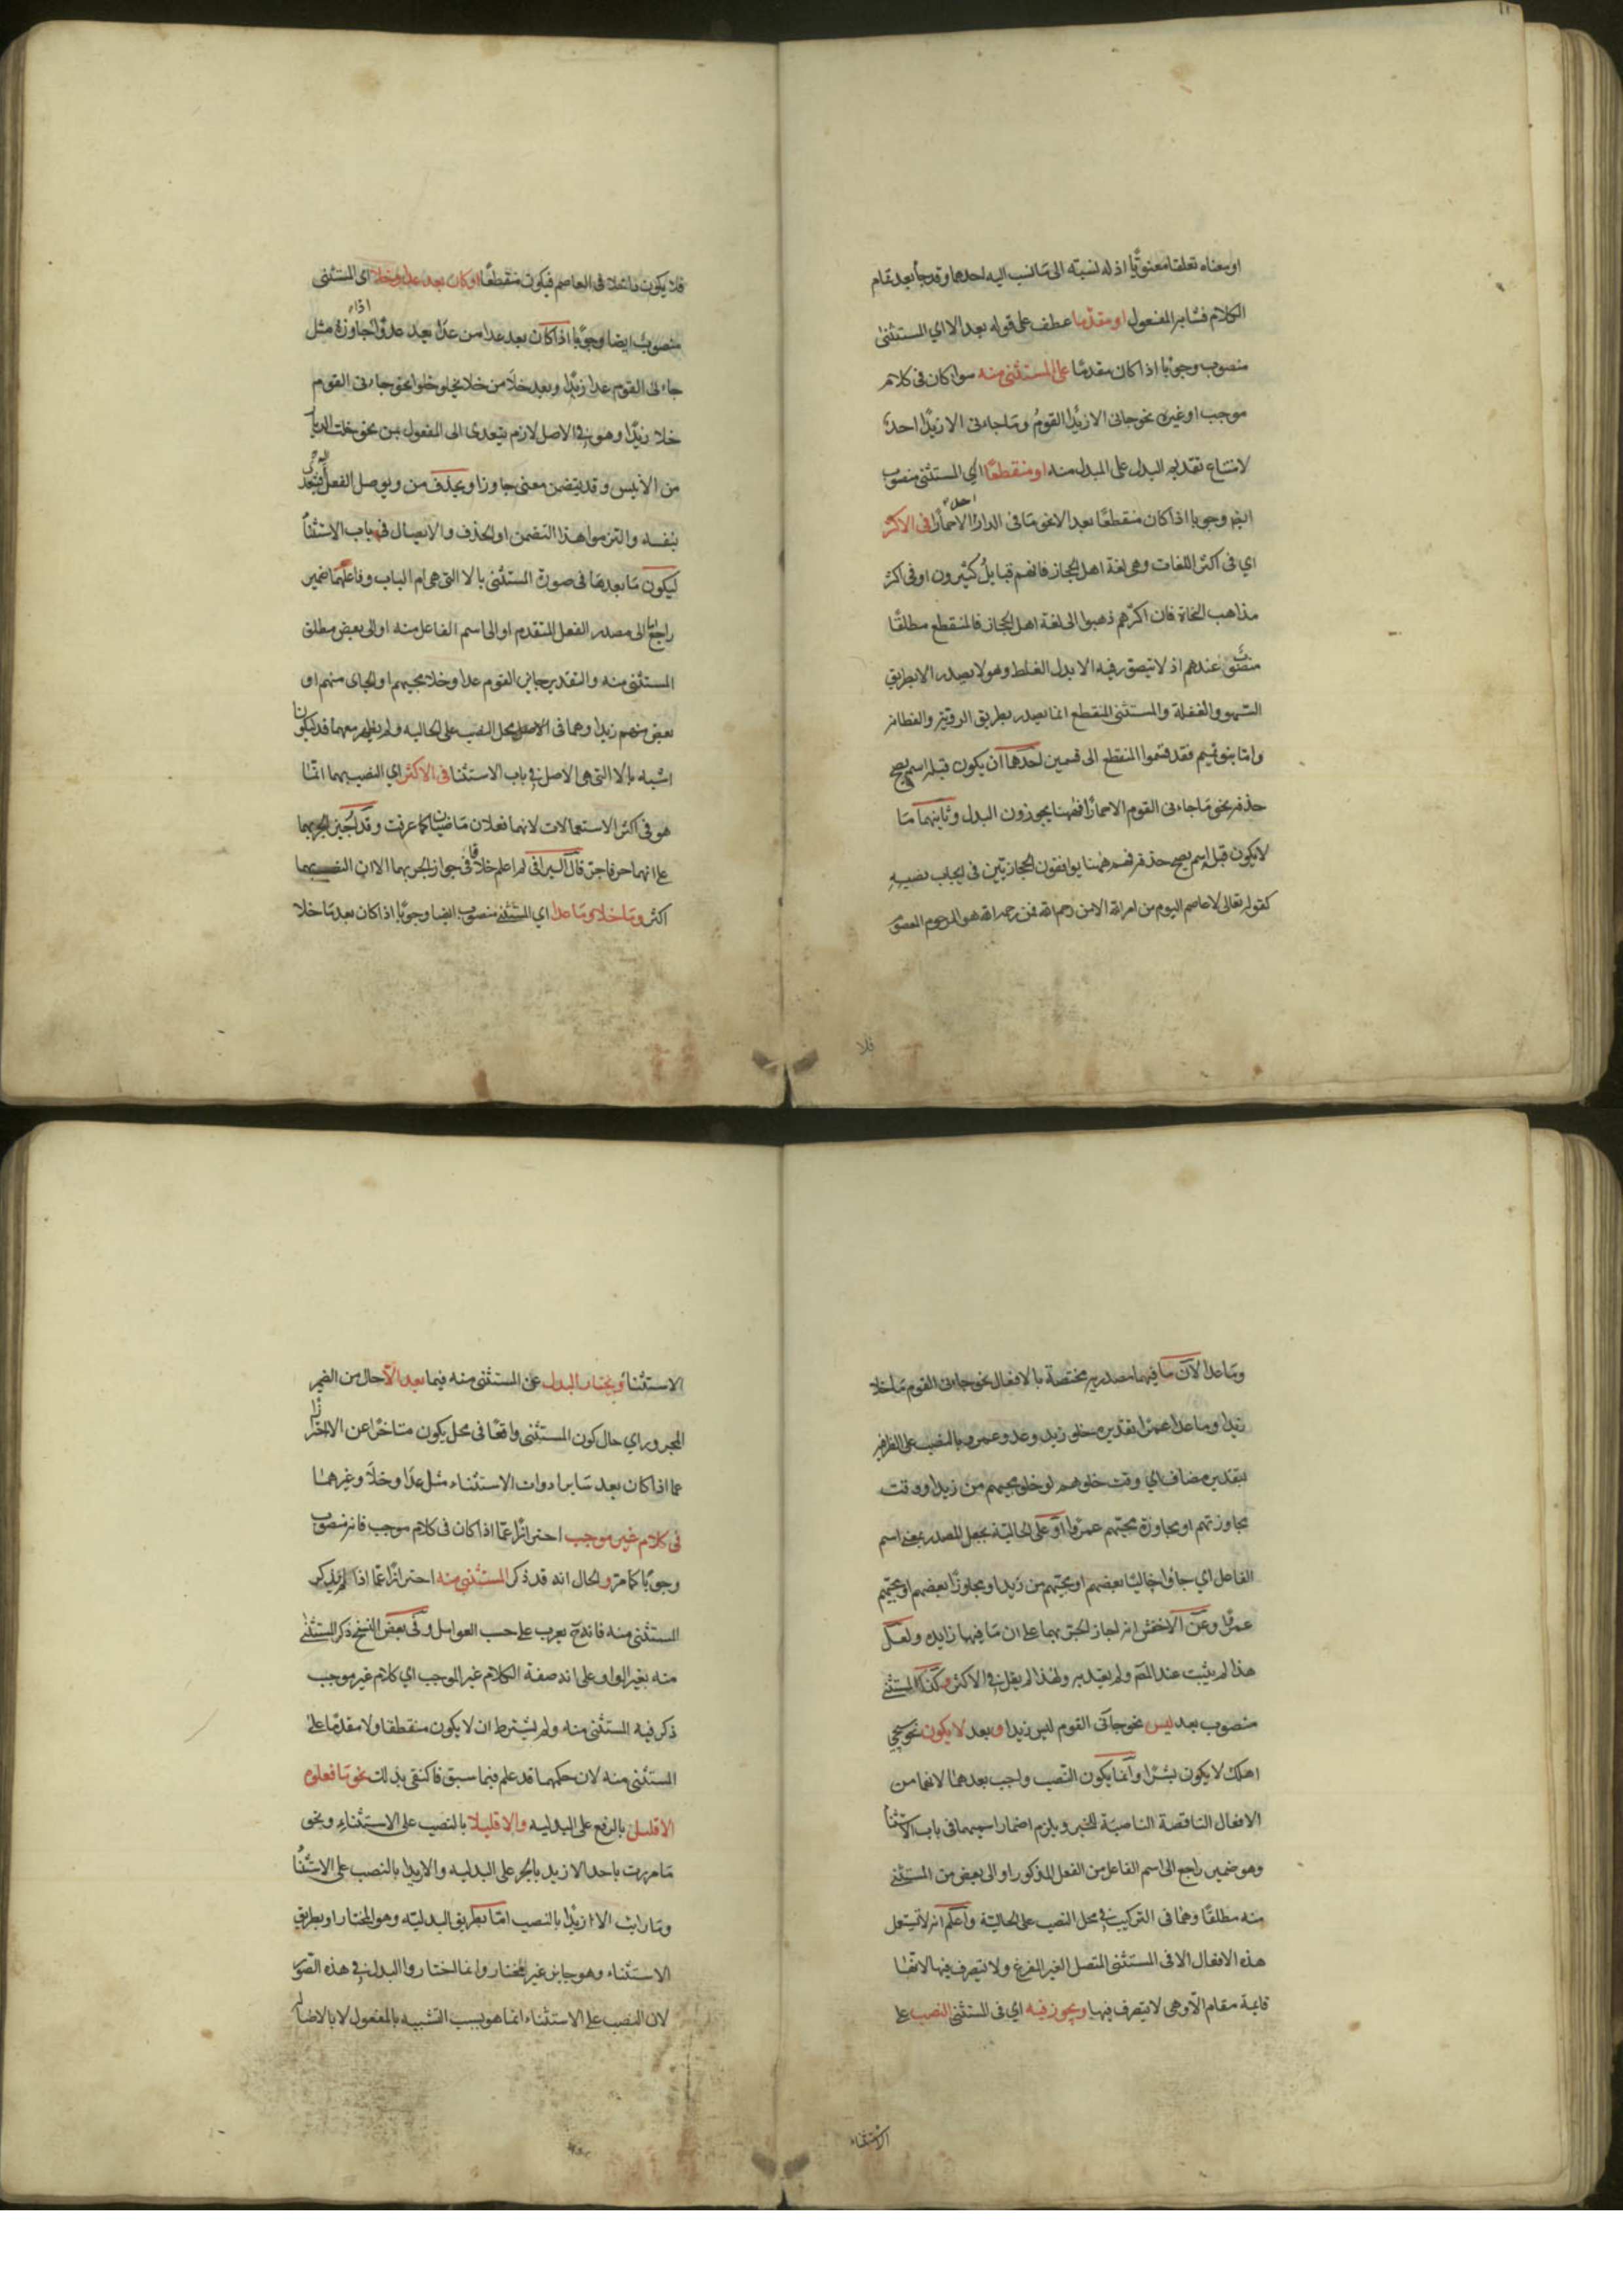 او معناه تعلقا معنويا اذ له نسبته الى ما نسب اليه احدهما وقد جاء بعد تمام
الكلام فشابه المفعول او مقدما عطف على قوله بعد الا اي المستثنى
منصوب وجوبا اذا كان مقدما على المستثنى منه سواء كان في كلام
موجب او غيره نحو جاني الا زيدا القوم وما جاءني الا زيدا احد
لامتناع تقديم البدل على المبدل منه او منقطعا اي المستثنى منصوب
ايضا وجوبا اذا كان منقطعا بعد الا نحو ما في الدار احد الا حمارا في الاكثر
اي في اكثر اللغات وهي لغة اهل الحجاز فانهم قبايل كثيرون او في اكثر
مذاهب النحاة فان اكثرهم ذهبوا الى لغة اهل الحجاز فالمنقطع مطلقا
منصوب عندهم اذ لا يتصور فيه الا بدل الغلط وهو لا يصدر الا بطريق
السهو والغفلة والمستثنى المنقطع انما يصدر بطريق الروية والفطانة
واما بنو تميم فقد قسموا المنقطع الى قسمين احدهما ان يكون قبله اسم يصح
حذفه نحو ما جاءني القوم الا حمارا فههنا يجوزون البدل وثانيهما ما
لا يكون قبله اسم يصح حذفه فهم ههنا يوافقون الحجازيين في ايجاب نصبه
كقوله تعالى لا عاصم اليوم من امر الله الا من رحم الله فمن رحمه الله هو المرحوم المعصوم
فلا
فلا يكون داخلا في العاصم فيكون منقطعا او كان بعد عدا وخلا اي المستثنى
منصوب ايضا وجوبا اذا كان بعد عدا من عدا يعدو عدوا اذا جاوزه مثل
جاءني القوم عدا زيدا وبعد خلا من خلا يخلو خلوا نحو جاءني القوم
خلا زيدا وهو في الاصل لازم يتعدى الى المفعول بمن نحو خلت الديار
من الانيس وقد يضمن معنى جاوز او يحذف من ويوصل الفعل فيتعدى
بنفسه والتزموا هذا التضمن او الحذف والايصال في باب الاستثناء
ليكون ما بعدها في صورة المستثنى بالا التي هي ام الباب وفاعلهما ضمير
راجع الى مصدر الفعل المتقدم او الى اسم الفاعل منه او الى بعض مطلق
المستثنى منه والتقدير جاني القوم عدا وخلا مجيهم او الجاي منهم او
بعض منهم زيدا وهما في الاصل محل النصب على الحالية ولم يظهر معهما قد ليكونا
اشبه بالا التي هي الاصل في باب الاستثنا في الاكثر اي النصب بهما انما
هو في اكثر الاستعمالات لانهما فعلان ماضيان كما عرفت وقد اجيز الجر بهما
على انهما حرفا جر قال السيرافي لم اعلم خلافا في جواز الجر بهما الا ان النصب بهما
اكثر وما خلا وما عدا اي المستثنى منصوب ايضا وجوبا اذا كان بعد ما خلا
وما عدا لان ما فيهما مصدرية مختصة بالافعال نحو جاءني القوم ما خلا
زيدا وما عدا عمرا تقديره خلو زيد وعدو عمرو بالنصب على الظرفية
بتقدير مضاف اي وقت خلوهم او خلو مجيهم من زيد ووقت
مجاوزتهم او مجاوزة مجيهم عمرا او على الحالية بجعل المصدر بمعنى اسم
الفاعل اي جاؤا خاليا بعضهم او مجيهم من زيد او مجاوزا بعضهم او مجيهم
عمرا وعن الاخفش انه اجاز الجر بهما على ان ما فيهما زايدة ولعل
هذا لم يثبت عند المص ولم يعتد به ولهذا لم يقل في الاكثر وكذا المستثنى
منصوب بعد ليس نحو جاني القوم ليس زيدا وبعد لا يكون نحو سيجي
اهلك لا يكون بشرا وانما يكون النصب واجب بعدهما لانهما من
الافعال الناقصة الناصبة للخبر ويلزم اضمار اسمهما في باب الاستثنا
وهو ضمير راجع الى اسم الفاعل من الفعل المذكور او الى بعض من المستثنى
منه مطلقا وهما في التركيب في محل النصب على الحالية واعلم انه لا يستعمل
هذه الافعال الا في المستثنى المتصل الغير المفرغ ولا يتصرف فيها لانها
قايمة مقام الا وهي لا يتصرف فيها ويجوز فيه اي في المستثنى النصب على
الاستثناء
الاستثنا ويختار البدل عن المستثنى منه فيما بعد الا حال من الضمير
المجرور اي حال كون المستثنى واقعا في محل يكون متاخرا عن الا احترازا
عما اذا كان بعد ساير ادوات الاستثناء مثل عدا وخلا وغيرهما
في كلام غير موجب احترازا عما اذا كان في كلام موجب فانه منصوب
وجوبا كما مر والحال انه قد ذكر المستثنى منه احترازا عما اذا لم يذكر
المستثنى منه فانه ح يعرب على حسب العوامل وفي بعض النسخ ذكر المستثنى
منه بغير الواو على انه صفة الكلام غير الموجب اي كلام غير موجب
ذكر فيه المستثنى منه ولم يشترط ان لا يكون منقطعا ولا مقدما على
المستثنى منه لان حكمهما قد علم فيما سبق فاكتفى بذلك نحو ما فعلوه
الا قليل بالرفع على البدلية والا قليلا بالنصب على الاستثناء ونحو
ما مررت باحد الا زيد بالجر على البدلية والا زيدا بالنصب على الاستثنا
وما رايت الا زيدا بالنصب اما بطريق البدلية وهو المختار او بطريق
الاستثناء وهو جايز غير المختار وانما اختاروا البدل في هذه الصور
لان النصب على الاستثناء انما هو بسبب التشبيه بالمفعول لا بالاصالة